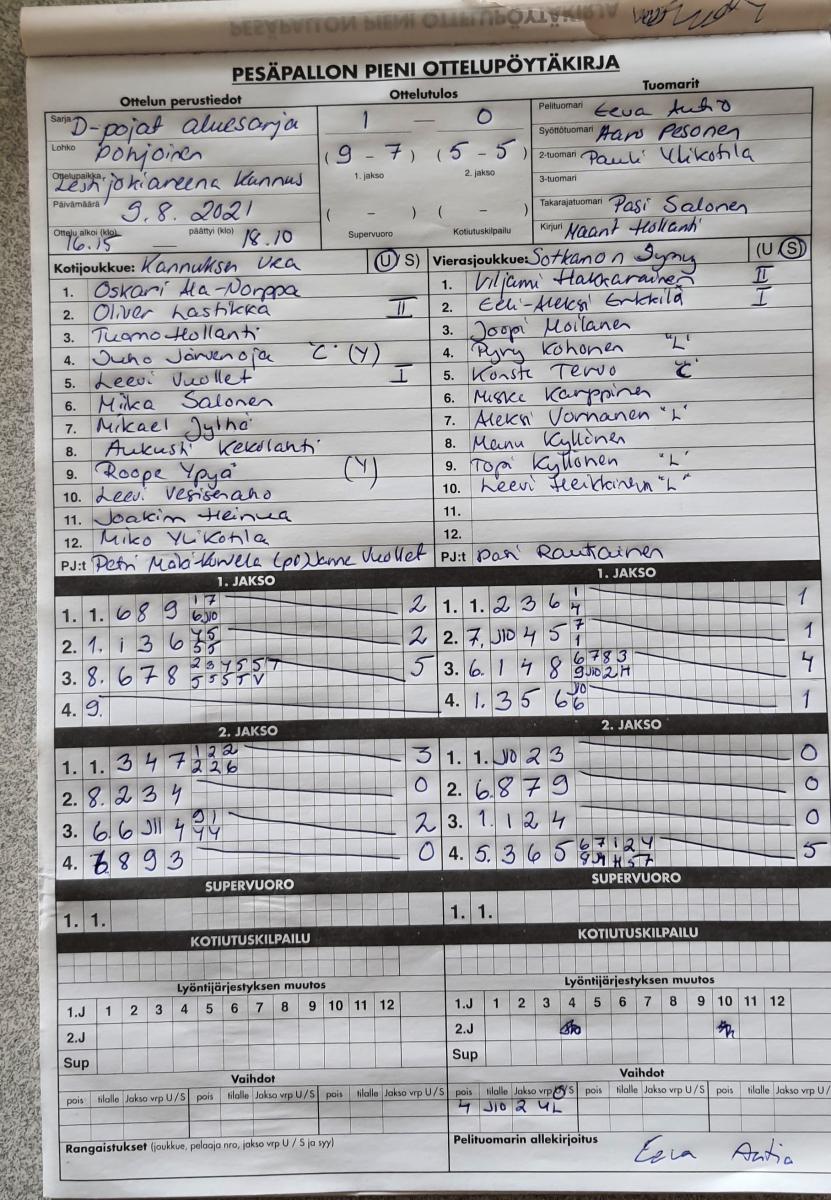 PESÄPALLON PIENI OTTELUPÖYTÄKIRJA
Ottelun perustiedot
Sarja D-pojat aluesarja
Lohko Pohjoinen
Ottelupaikka Lestijokiareena Kannus
Päivämäärä 9.8.2021
Ottelu alkoi (klo) 16.15 — päättyi (klo) 18.10
Ottelutulos
1 — 0
(9 - 7) (5 - 5)
1. jakso 2. jakso
( - ) ( - )
Supervuoro Kotiutuskilpailu
Tuomarit
Pelituomari Eeva Autio
Syöttötuomari Aaro Pesonen
2-tuomari Pauli Ylikotila
3-tuomari
Takarajatuomari Pasi Salonen
Kirjuri Hollanti
Kotijoukkue: Kannuksen Ura (U S)
1. Oskari Ala-Norppa
2. Oliver Lastikka II
3. Tuomo Hollanti
4. Juho Järvenoja "C" (Y)
5. Leevi Vuollet I
6. Miika Salonen
7. Mikael Jylhä
8. Aukusti Kekolahti
9. Roope Ypyä (Y)
10. Leevi Vesisenaho
11. Joakim
12. Miko Ylikotila
PJ:t Petri (pj) Janne Vuollet
Vierasjoukkue: Sotkamon Jymy (U S)
1. Viljami Hakkarainen II
2. Eeli-Aleksi Erkkilä I
3. Joopi Moilanen
4. Pyry Kohonen "L"
5. Konsta Tervo "C"
6. Miska Karppinen
7. Aleksi Vornanen "L"
8. Manu Kyllönen
9. Topi Kyllönen "L"
10. Leevi Heikkinen "L"
11.
12.
PJ:t Pasi Rautiainen
1. JAKSO
1. 1. 6 8 9 2
2. 1. 1 3 6 2
3. 8. 6 7 8 5
4. 9.
1. JAKSO
1. 1. 2 3 6 1
2. 7. J10 4 5 1
3. 6. 1 4 8 4
4. 1. 3 5 6 1
2. JAKSO
1. 1. 3 4 7 1 2 2 3
2 2 6
2. 8. 2 3 4 0
3. 6. 6 J11 4 9 1 2
4 4
4. 8 9 3 0
2. JAKSO
1. 1. J10 2 3 0
2. 6. 8 7 9 0
3. 1. 1 2 4 0
4. 5. 3 6 5 6 7 1 2 4 5
SUPERVUORO
1. 1.
SUPERVUORO
1. 1.
KOTIUTUSKILPAILU
KOTIUTUSKILPAILU
Lyöntijärjestyksen muutos
1.J 1 2 3 4 5 6 7 8 9 10 11 12
2.J
Sup
Lyöntijärjestyksen muutos
1.J 1 2 3 4 5 6 7 8 9 10 11 12
2.J
Sup
Vaihdot
pois tilalle Jakso vrp U / S pois tilalle Jakso vrp U / S pois tilalle Jakso vrp U / S
Vaihdot
pois tilalle Jakso vrp U/S pois tilalle Jakso vrp U / S pois tilalle Jakso vrp U /
4 J10 2 4L
Rangaistukset (joukkue, pelaaja nro, jakso vrp U / S ja syy)
Pelituomarin allekirjoitus
Eeva Autio